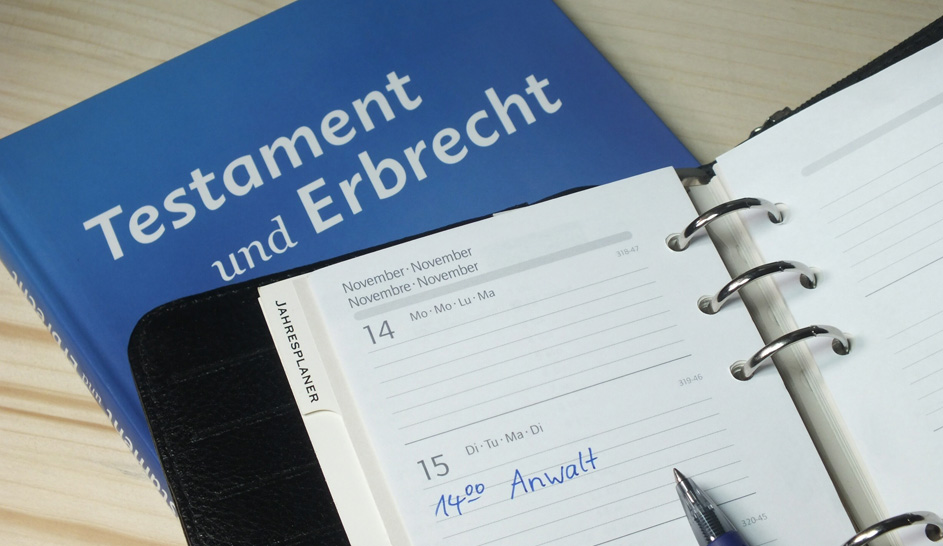 Testament
und Erbrecht
November · November
Novembre · November
318-47
14 Mo · Mo · Lu · Ma
JAHRESPLANER
319-46
15 Di · Tu · Ma · Di
14⁰⁰ Anwalt
320-45